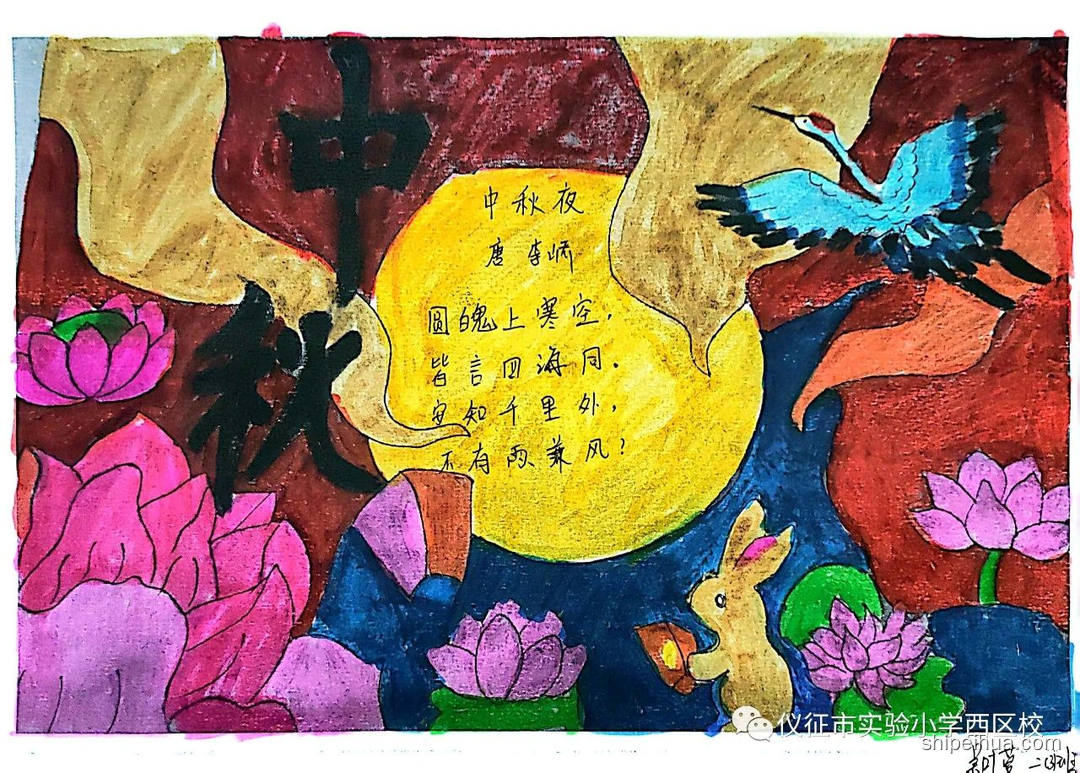 中
秋
中秋夜
唐 李峤
圆魄上寒空，
皆言四海同．
安知千里外，
不有两兼风？
仪征市实验小学西区校
shipeihua.com